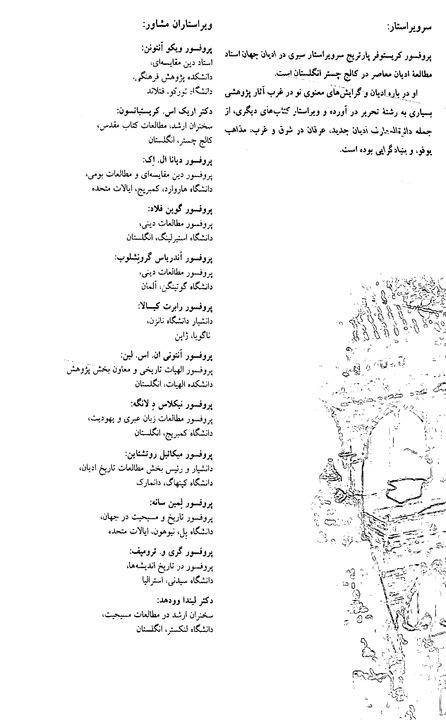 سرویراستار:
پروفسور کریستوفر پارتریج سرویراستار سری در ادیان جهان استاد
مطالعهٔ ادیان معاصر در کالج چستر انگلستان است.
او در باره ادیان و گرایش‌های معنوی نو در غرب آثار پژوهشی
بسیاری به رشتهٔ تحریر در آورده و ویراستار کتاب‌های دیگری، از
جمله دائرةالمعارف ادیان جدید، عرفان در شرق و غرب، مذاهب
یوفو، و بنیادگرایی بوده است.
ویراستاران مشاور:
پروفسور ویکو آنتونن:
استاد دین مقایسه‌ای،
دانشکده پژوهش فرهنگی،
دانشگاه تورکو، فنلاند
دکتر اریک اس. کریستیانسون:
سخنران ارشد، مطالعات کتاب مقدس،
کالج چستر، انگلستان
پروفسور دیانا ال. اِک:
پروفسور دین مقایسه‌ای و مطالعات بومی،
دانشگاه هاروارد، کمبریج، ایالات متحده
پروفسور گوین فلاد:
پروفسور مطالعات دینی،
دانشگاه استیرلینگ، انگلستان
پروفسور آندریاس گرونشلوب:
پروفسور مطالعات دینی،
دانشگاه گوتینگن، آلمان
پروفسور رابرت کیسالا:
دانشیار دانشگاه نانزن،
ناگویا، ژاپن
پروفسور آنتونی ان. اس. لین:
پروفسور الهیات تاریخی و معاون بخش پژوهش
دانشکده الهیات، انگلستان
پروفسور نیکلاس دِ لانگه:
پروفسور مطالعات زبان عبری و یهودیت،
دانشگاه کمبریج، انگلستان
پروفسور میکائیل روتشتاین:
دانشیار و رئیس بخش مطالعات تاریخ ادیان،
دانشگاه کپنهاگ، دانمارک
پروفسور لمین سانه:
پروفسور تاریخ و مسیحیت در جهان،
دانشگاه یِل، نیوهون، ایالات متحده
پروفسور گری و. ترومپف:
پروفسور در تاریخ اندیشه‌ها،
دانشگاه سیدنی، استرالیا
دکتر لیندا وودهد:
سخنران ارشد در مطالعات مسیحیت،
دانشگاه لنکستر، انگلستان